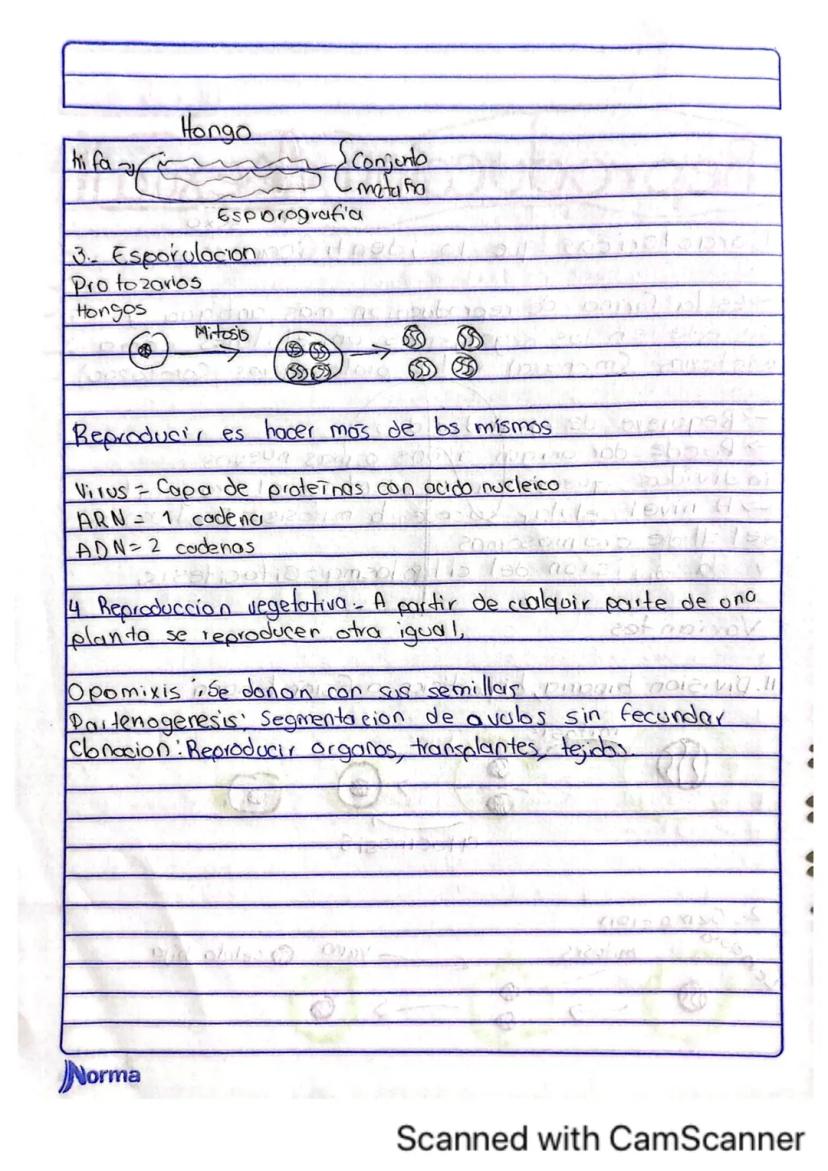 Hongo
hifa
Conjunto
Esporografia
3.- Esporulacion
Protozarios
Hongos
Mitosis
Reproducir es hacer mas de los mismos
Virus = Capa de proteínas con acido nucleico
ARN = 1 cadena
ADN = 2 cadenas
4 Reproduccion vegetativa - A partir de cualquir parte de una
planta se reproducer otra igual,
Opomixis: Se donan con sus semillas
Partenogenesis: Segmentacion de avulos sin fecundar
Clonacion: Reproducir organos, transplantes, tejidos.
Norma
Scanned with CamScanner